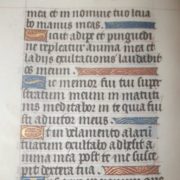 mea et in nomine tuo leua
bo manus meas.
Sicut adipe et pinguedi
ne repleatur anima mea et
labijs exultationis laudabit
os meum.
Sic memor fui tui super
stratum meum in matuti
nis meditabor in te quia fui
sti adiutor meus
Et in velamento alarum
tuarum exultabo adhesit a
nima mea post te me susce
pit dextera tua